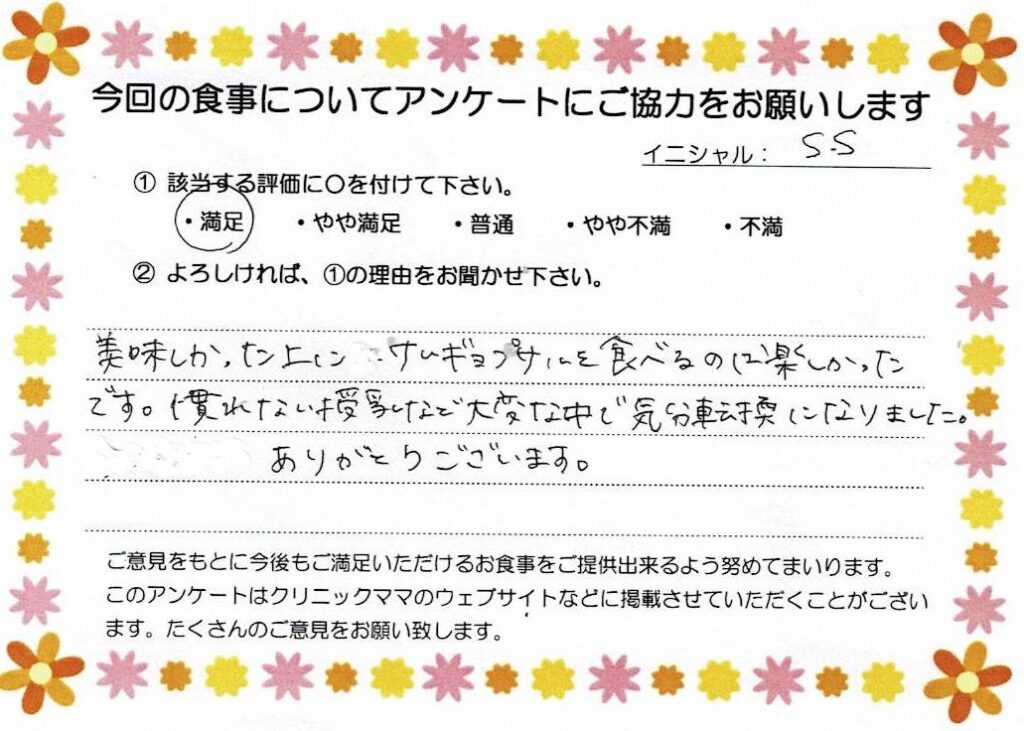 今回の食事についてアンケートにご協力をお願いします
イニシャル： S.S
① 該当する評価に〇を付けて下さい。
・満足 ・やや満足 ・普通 ・やや不満 ・不満
② よろしければ、①の理由をお聞かせ下さい。
美味しかった上に サムギョプサルを食べるのは楽しかった
です。慣れない授乳などで大変な中で気分転換になりました。
ありがとうございます。
ご意見をもとに今後もご満足いただけるお食事をご提供出来るよう努めてまいります。
このアンケートはクリニックママのウェブサイトなどに掲載させていただくことがござい
ます。たくさんのご意見をお願い致します。